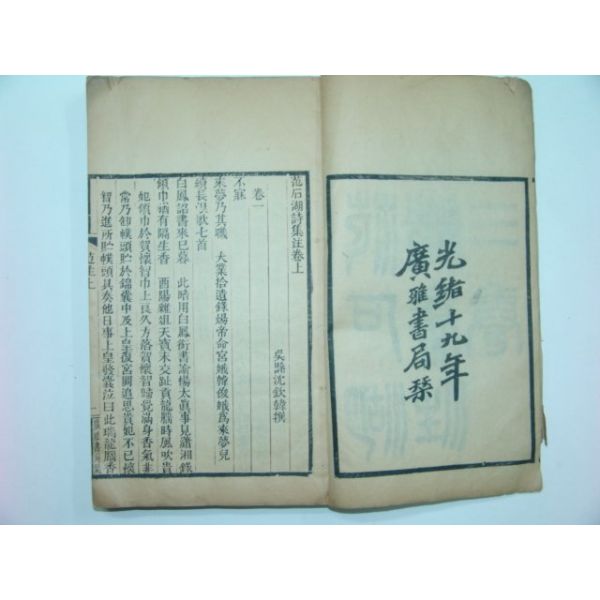 光緒十九年
廣雅書局栞
范石湖詩集注卷上
吳縣沈欽韓撰
卷一
不寐
來夢乃其職 大業拾遺錄煬帝命宮娥韓俊娥爲來夢兒
續長恨歌七首
白鳳詔書來已暮 此暗用白鳳銜書諭楊太眞事見瀟湘錄
領巾猶有隔生香 酉陽雜俎天寶末交趾貢龍腦時風吹貴
妃領巾於賀懷智巾上良久方落賀懷智歸覺滿身香氣非
常乃卸幞頭貯於錦囊中及上皇復宮闕追思貴妃不已懷
智乃進所貯幞頭具奏他日事上皇發囊泣曰此瑞龍腦香
范注上